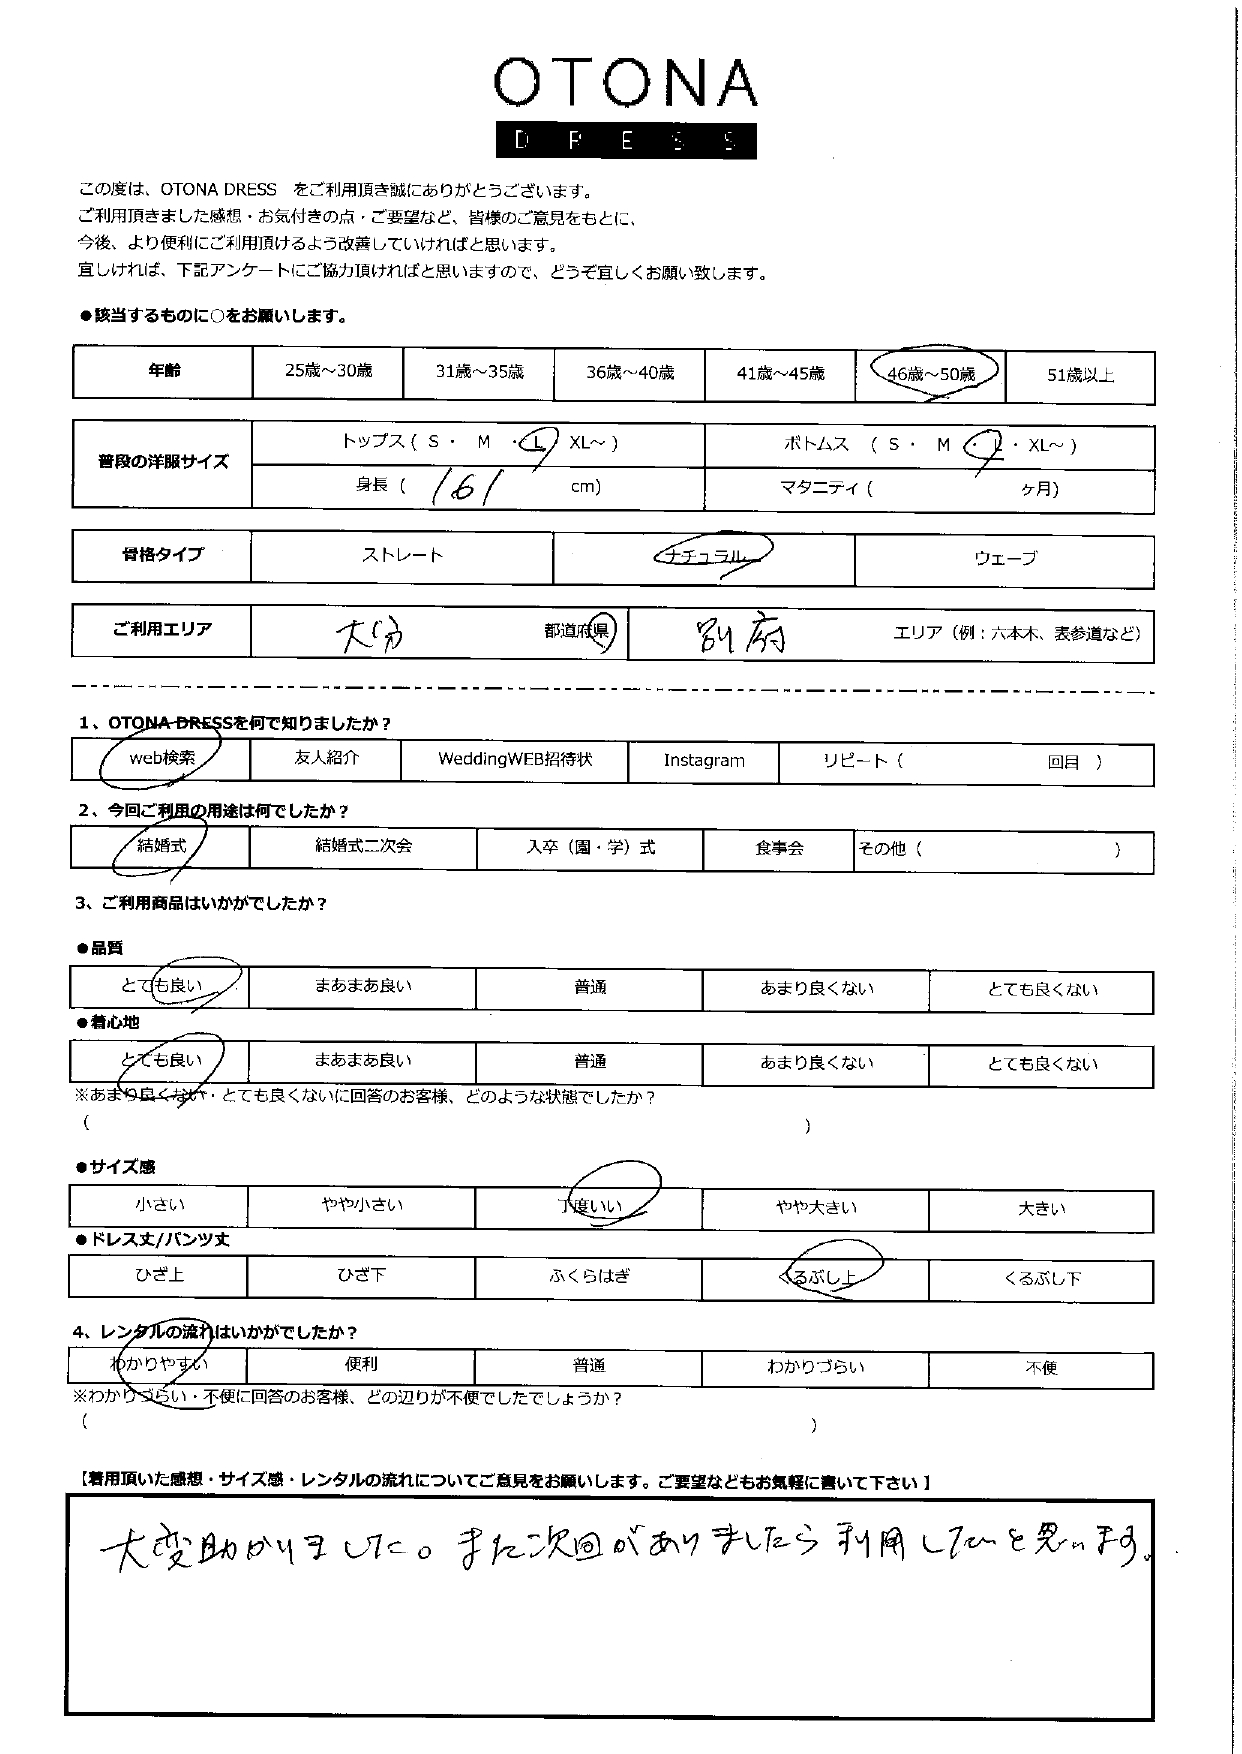 OTONA
DRESS
この度は、OTONA DRESS　をご利用頂き誠にありがとうございます。
ご利用頂きました感想・お気付きの点・ご要望など、皆様のご意見をもとに、
今後、より便利にご利用頂けるよう改善していければと思います。
宜しければ、下記アンケートにご協力頂ければと思いますので、どうぞ宜しくお願い致します。
●該当するものに○をお願いします。
年齢 25歳～30歳 31歳～35歳 36歳～40歳 41歳～45歳 46歳～50歳 51歳以上
普段の洋服サイズ トップス ( S ・ M ・ L XL～ ) ボトムス ( S ・ M ・ L ・ XL～ )
身長 ( 161 cm) マタニティ ( ヶ月)
骨格タイプ ストレート ナチュラル ウェーブ
ご利用エリア 大分 都道府県 別府 エリア（例：六本木、表参道など）
1、OTONA DRESSを何で知りましたか？
web検索 友人紹介 WeddingWEB招待状 Instagram リピート ( 回目 )
2、今回ご利用の用途は何でしたか？
結婚式 結婚式二次会 入卒（園・学）式 食事会 その他 ( )
3、ご利用商品はいかがでしたか？
●品質
とても良い まあまあ良い 普通 あまり良くない とても良くない
●着心地
とても良い まあまあ良い 普通 あまり良くない とても良くない
※あまり良くない・とても良くないに回答のお客様、どのような状態でしたか？
( )
●サイズ感
小さい やや小さい 丁度いい やや大きい 大きい
●ドレス丈/パンツ丈
ひざ上 ひざ下 ふくらはぎ くるぶし上 くるぶし下
4、レンタルの流れはいかがでしたか？
わかりやすい 便利 普通 わかりづらい 不便
※わかりづらい・不便に回答のお客様、どの辺りが不便でしたでしょうか？
( )
【着用頂いた感想・サイズ感・レンタルの流れについてご意見をお願いします。ご要望などもお気軽に書いて下さい】
大変助かりました。また次回がありましたら利用したいと思います。